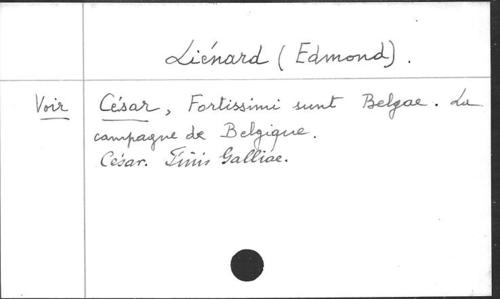 Liénard (Edmond).
Voir César, Fortissimi sunt Belgae. La
campagne de Belgique.
César. Finis Galliae.